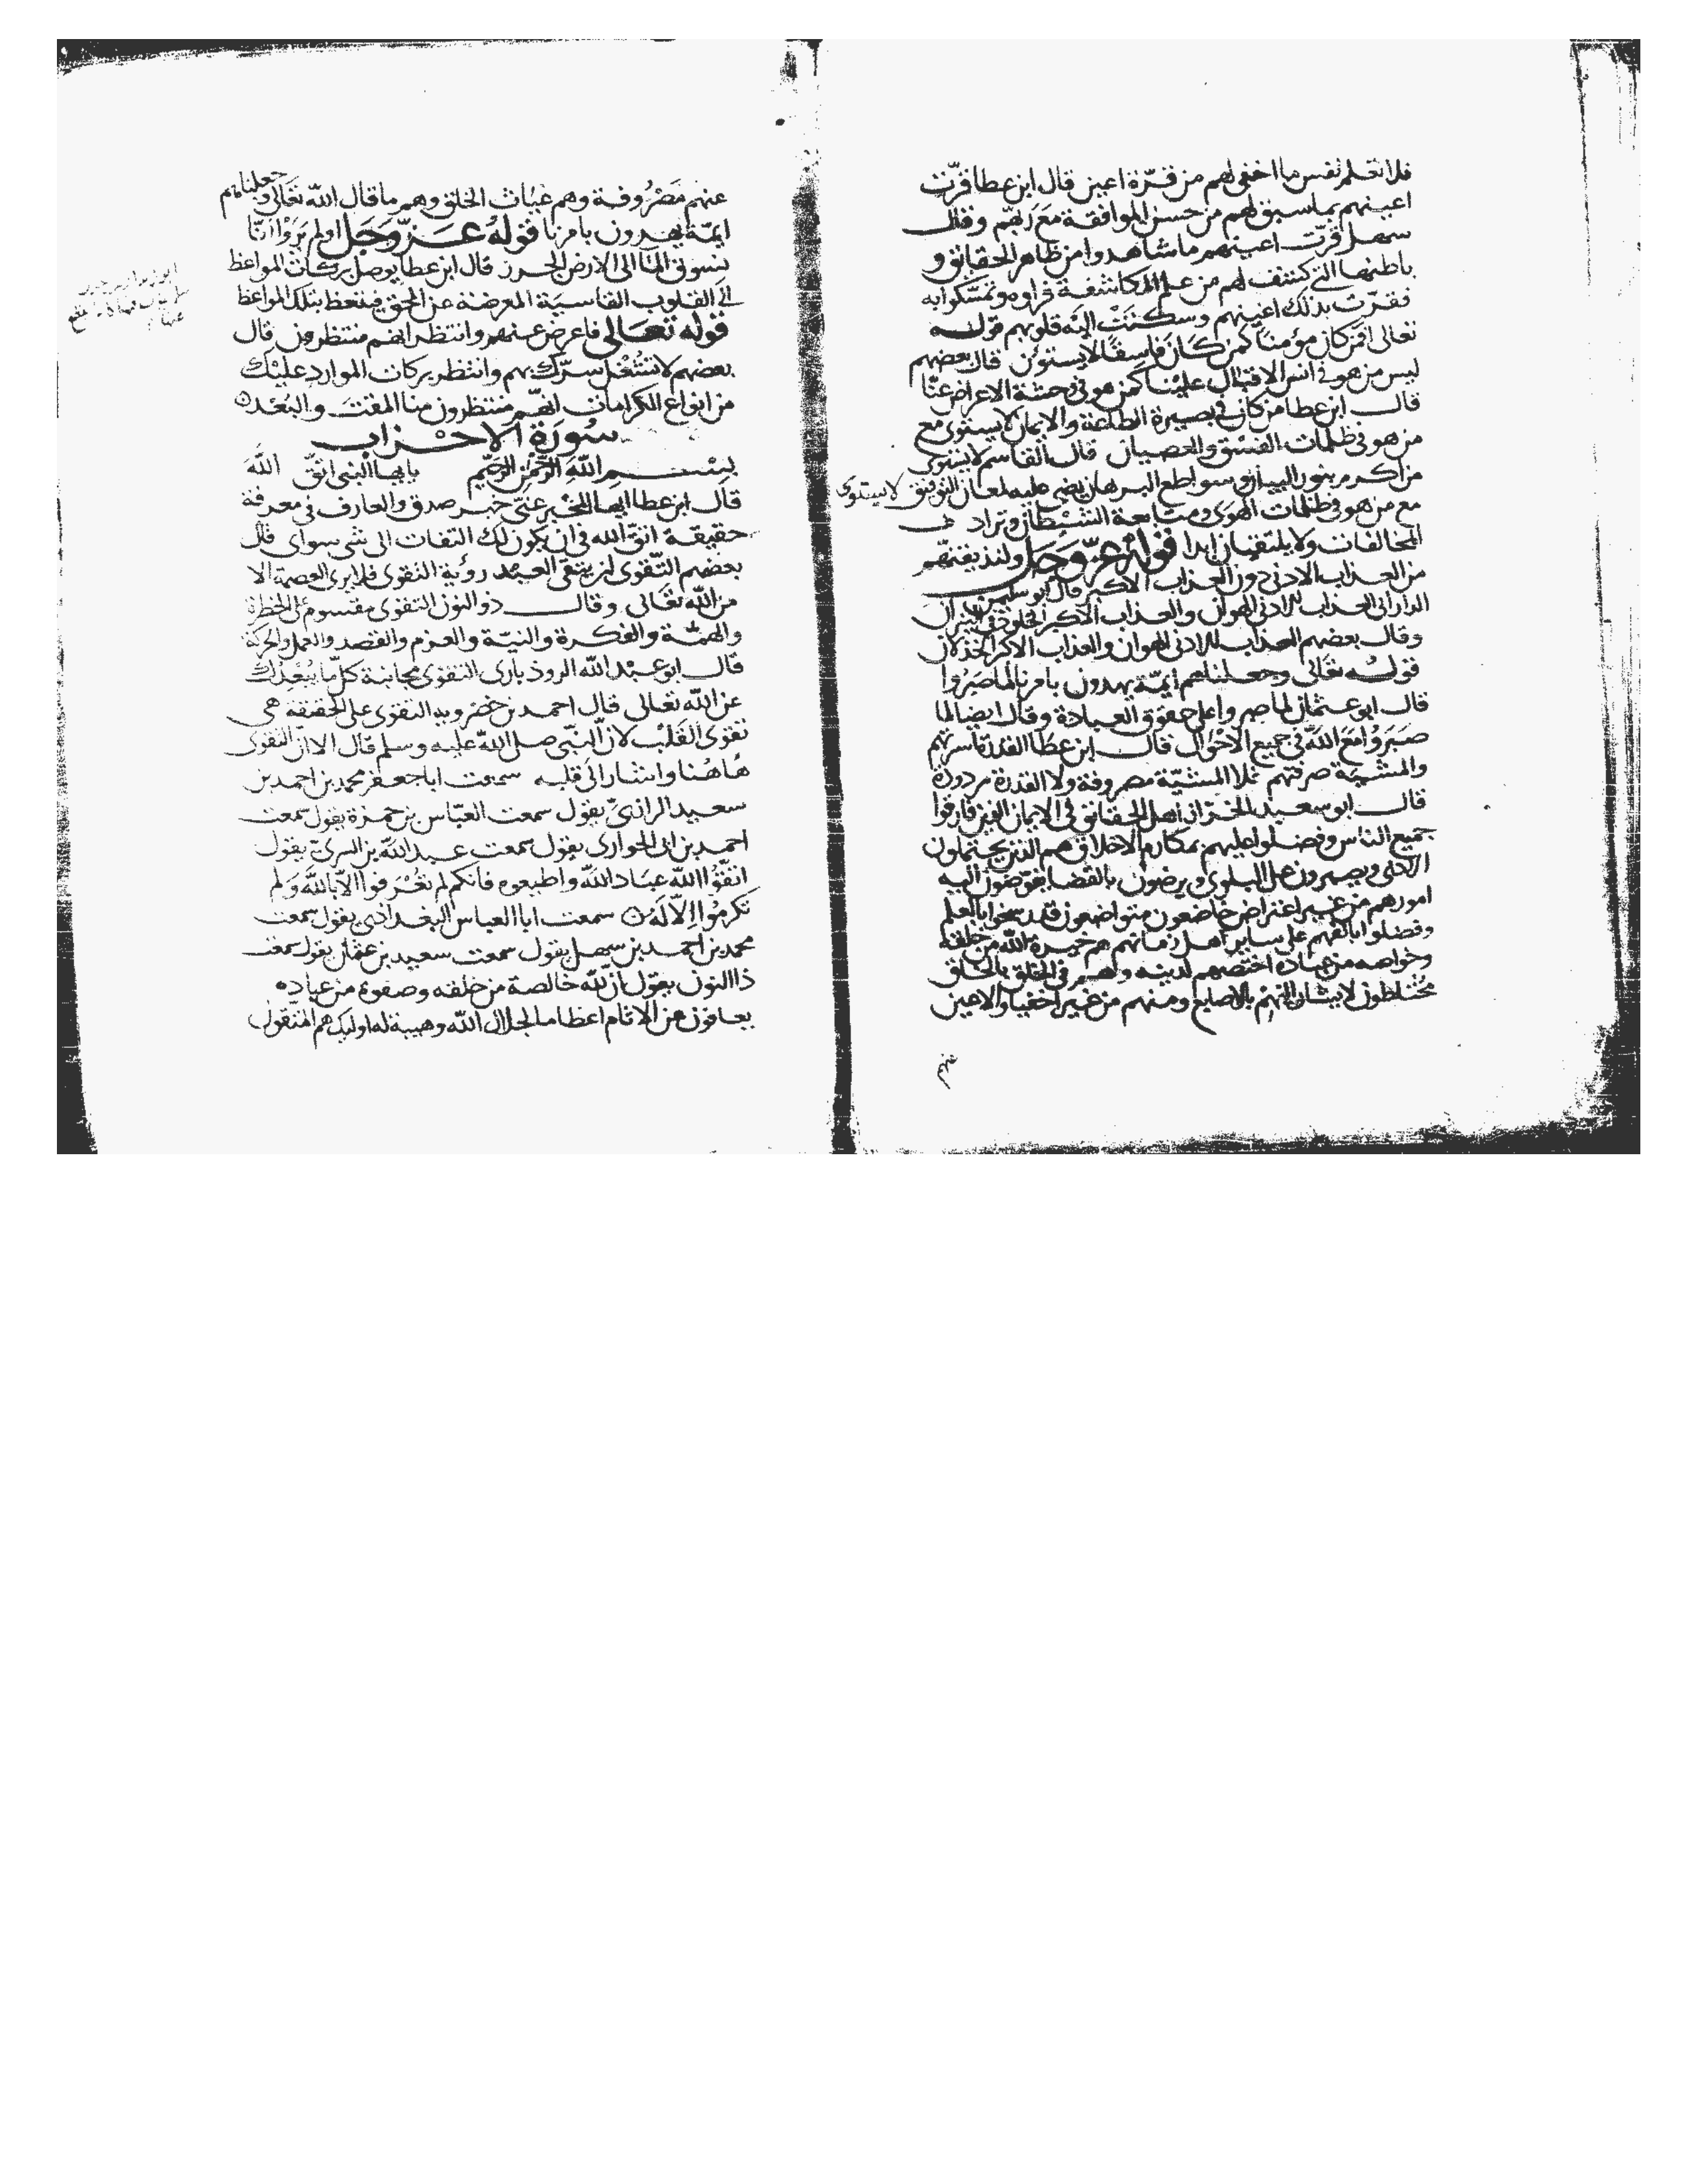 فلا تعلم نفس ما اخفى لهم من قرّة اعين قال ابن عطا قرّت
اعينهم بما سبق لهم من حسن الموافقة مع ربهم وقال
سهل قرّت اعينهم ما شاهدوا من ظاهر الحقائق و
باطنها التى كشف لهم من علم المكاشفة فراوه وتمسّكوا به
فقرّت بذلك اعينهم وسكنت اليه قلوبهم قوله
تعالى افمن كان مؤمناً كمن كان فاسقًا لا يستوٗن قال بعضهم
ليس من هو فى انس الاقبال علينا كمن هو فى وحشة الاعراض عنّا
قال ابن عطا من كان فى بصيرة الطاعة والايمان لا يستوى مع
من هو فى ظلمات الفسق والعصيان قال القاسم لا يستوى
من اكرم بنور البيان وسواطع البرهان يضى عليه لمعان التوفيق لا يستوى
مع من هو فى ظلمات الهوى ومتابعة الشيطان وتراد ف
المخالفات ولا يلتقيان ابدا قوله عزّ وجل ولنذيقنهم
من العذاب الادنى دون العذاب الاكبر قال ابو سليمن
الدارانى العذاب الادنى الهوان والعذاب الاكبر الخلود فى النيران
وقال بعضهم العذاب الادنى الهوان والعذاب الاكبر الخذلان
قوله تعالى وجعلنا منهم ايمّة يهدون بامرنا لما صبروا
قال ابو عثمان لما صبروا على حقوق العبادة وقال ايضا لما
صبروا مع الله فى جميع الاحوال قال ابن عطا القدرة اسرتهم
والمشيّة صرفتهم فلا المشيّة مصروفة ولا القدرة مردودة
قال ابو سعيد الخرّاز اهل الحقائق فى الايمان الذين فارقوا
جميع الناس وفضلوا عليهم بمكارم الاخلاق هم الذين يحتملون
الاذى ويصبرون على البلوى ويرضون بالقضا يفوّضون اليه
امورهم من غير اعتراض خاضعون متواضعون قد سخوا بالعلم
وفضلوا بالفهم على ساير اهل زمانهم هم خيرة الله من خلقه
وخواصه من عباده اختصهم لدينه وهم فى الخلق بالخلق
مختلطون لا يشار اليهم بالاصابع ومنهم من غير اخفيا والاعين
عنهم
عنهم مصروفة وهم غياث الخلق وهم ما قال الله تعالى وجعلناهم
ايمّة يهدون بامرنا قوله عزّ وجل اولم يروا انّا
نسوق المآ الى الارض الجرز قال ابن عطا يوصل بركات المواعظ
الى القلوب القاسية المعرضة عن الحق فيتعظ بتلك المواعظ
قوله تعالى فاعرض عنهم وانتظر انهم منتظرون قال
بعضهم لا تشغل سرّك بهم وانتظر بركات الموارد عليك
من انواع الكرامات انهم منتظرون منا المقت والبعد
سورة الاحزاب
بسم الله الرحمن الرحيم يايها النبى اتق الله
قال ابن عطا ايها المخبر عنّى خبر صدق والعارف فى معرفة
حقيقة اتق الله فى ان يكون لك التفات الى شى سواى قال
بعضهم التقوى ان يتقى العبد رؤية التقوى فلا يرى العصمة الا
من الله تعالى وقال ذو النون التقوى مقسوم على الخطرة
والهمّة والفكرة والنيّة والعزم والقصد والعمل والحركة
قال ابو عبد الله الروذبارى التقوى مجانبة كل ما يبعدك
عن الله تعالى قال احمد بن خضرويه التقوى على الحقيقة هى
تقوى القلب لان النبى صلى الله عليه وسلم قال الا ان التقوى
هاهنا واشار الى قلبه سمعت ابا جعفر محمد بن احمد بن
سعيد الرازىّ يقول سمعت العبّاس بن حمزة يقول سمعت
احمد بن ابى الحوارى يقول سمعت عبد الله بن السرىّ يقول
اتقوا الله عباد الله واطيعوه فانكم لم تعرفوا الا بالله ولم
تكرموا الّا له سمعت ابا العباس البغدادى يقول سمعت
محمد بن احمد بن سهل يقول سمعت سعيد بن عثمان يقول سمعت
ذا النون يقول ان لله خالصة من خلقه وصفوة من عباده
يعافون عن الاثام اعظاما لجلال الله وهيبة له اوليك هم المتقون